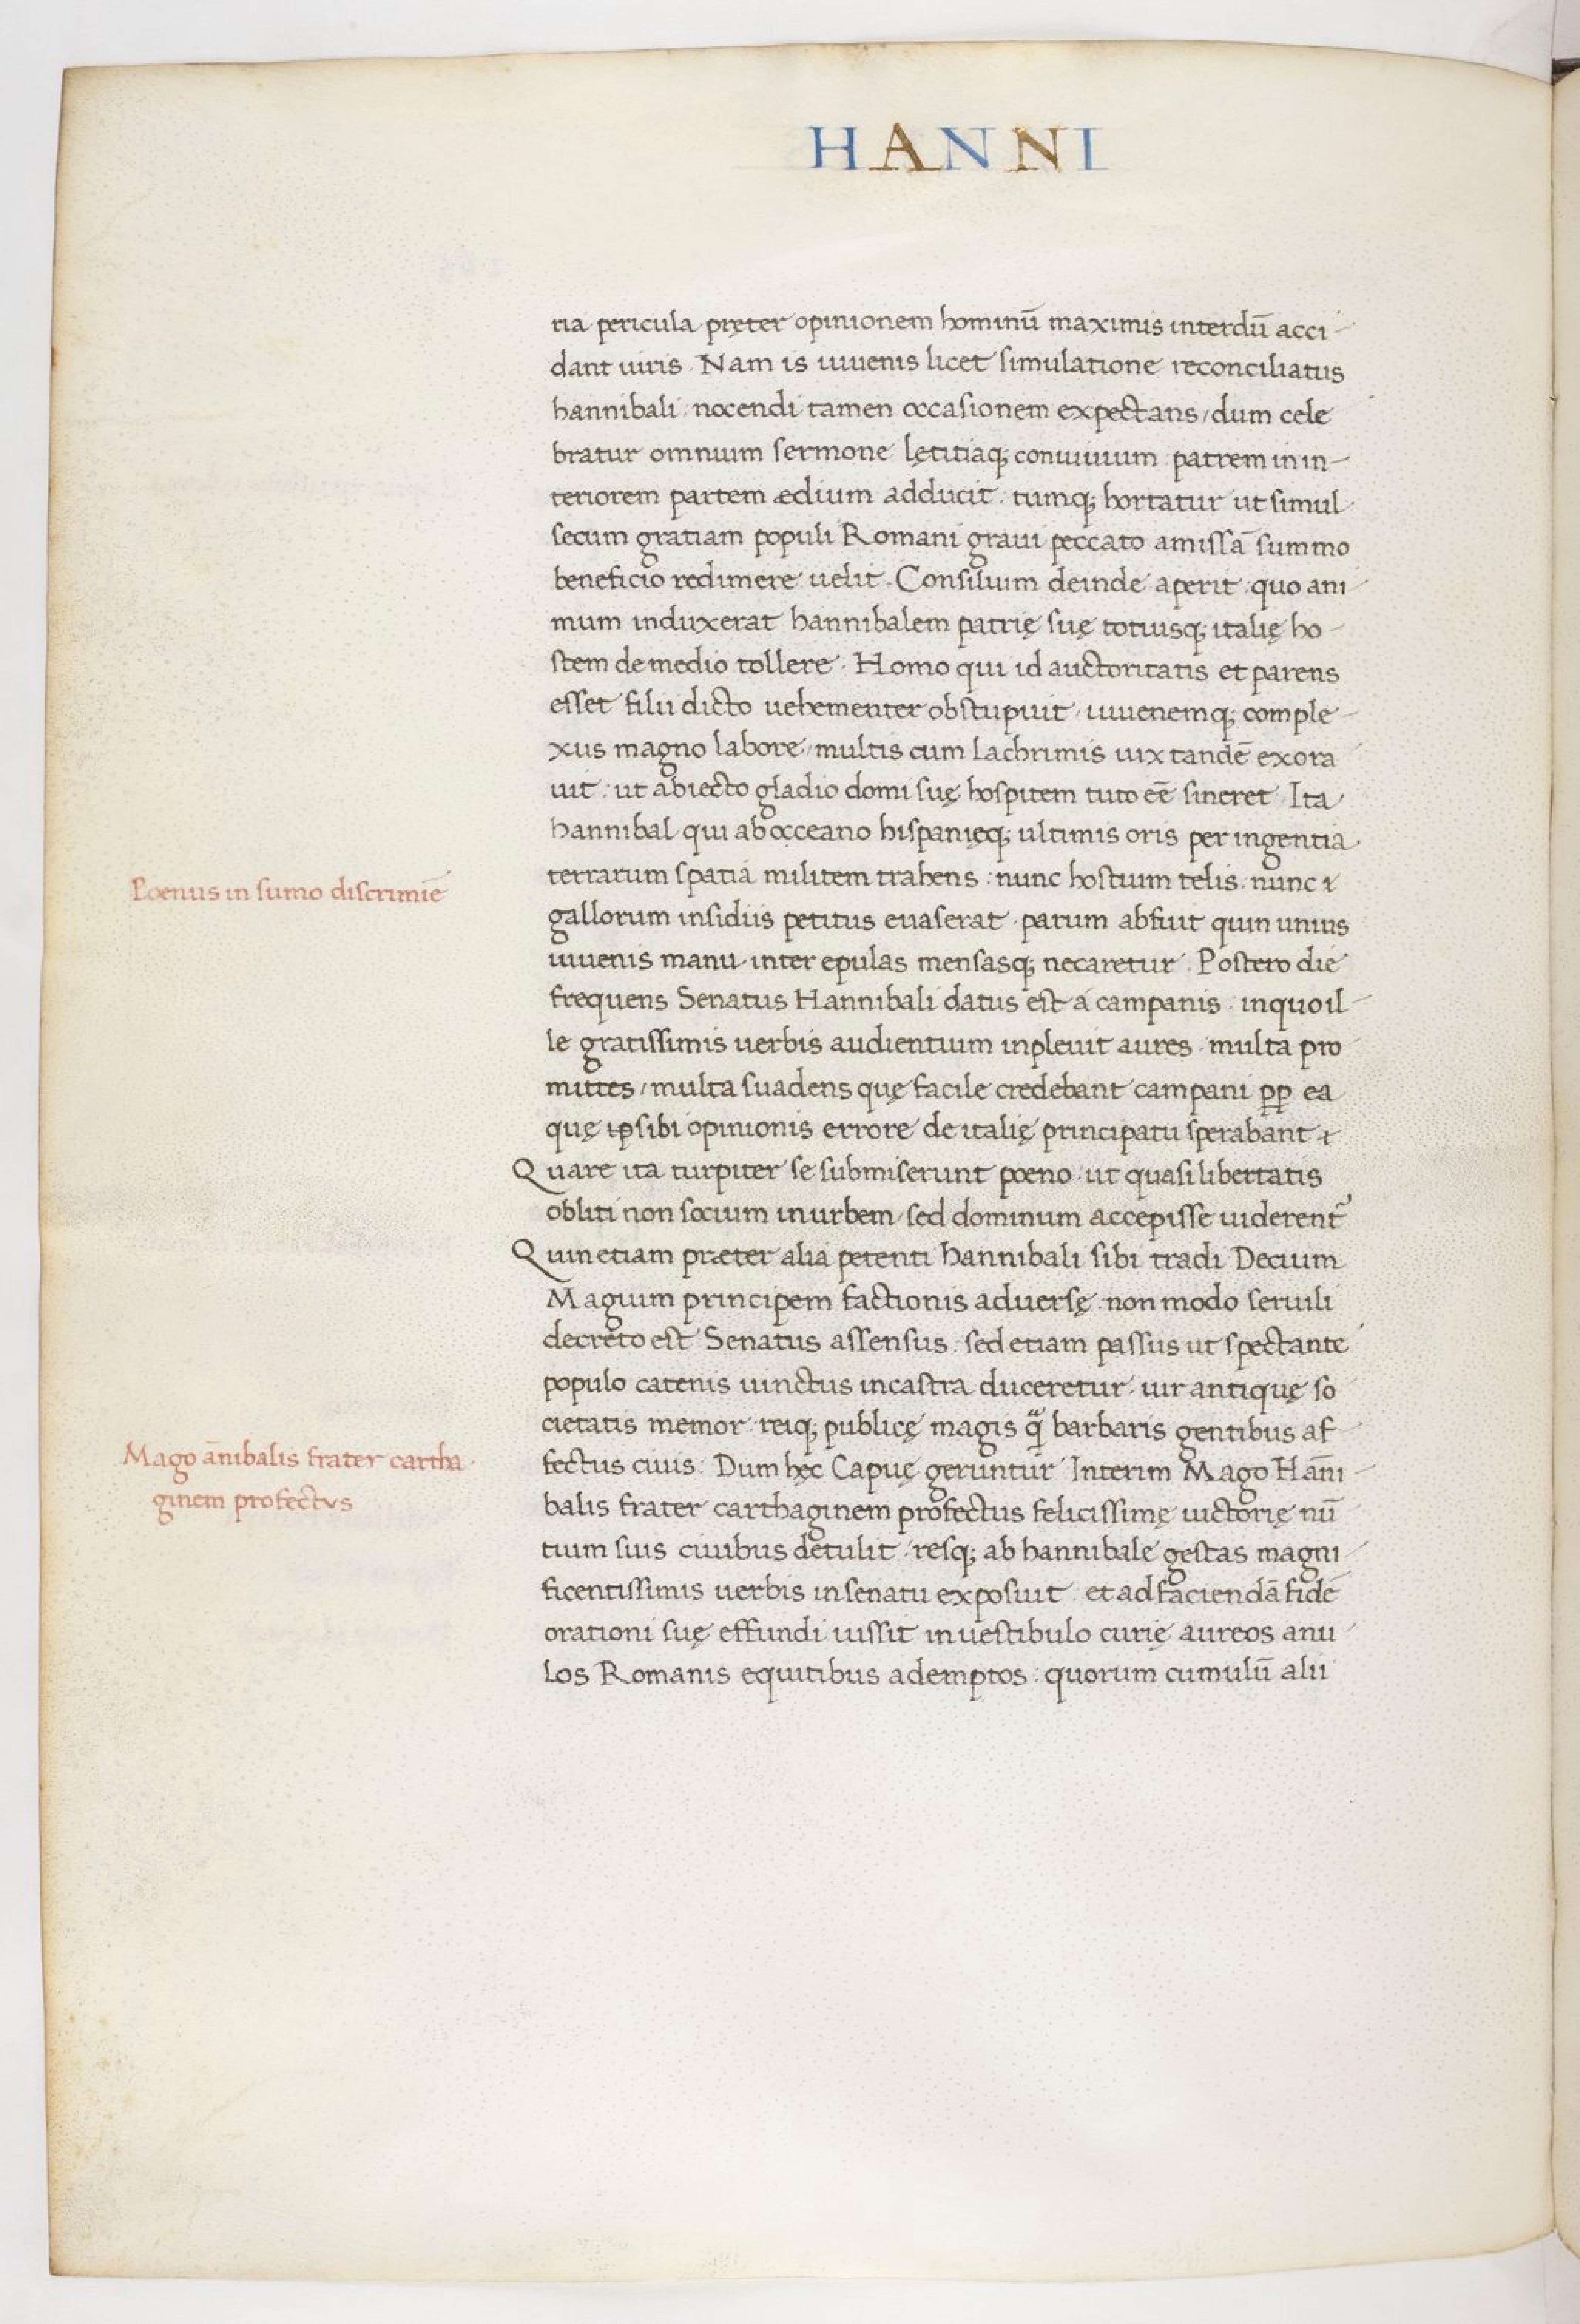 HANNI
ria pericula pręter opinionem hominū maximis interdū acci-
dant uiris. Nam is iuuenis licet simulatione reconciliatus
hannibali: nocendi tamen occasionem expectans/ dum cele
bratur omnium sermone lętitiaq; conuiuium: patrem in in-
teriorem partem ædium adducit. tumq; hortatur ut simul
secum gratiam populi Romani graui peccato amissā summo
beneficio redimere uelit. Consilium deinde aperit: quo ani
mum induxerat hannibalem patrię suę totiusq; italię ho-
stem de medio tollere. Homo qui id auctoritatis et parens
esset filii dicto uehementer obstupuit/ iuuenemq; comple-
xus magno labore/ multis cum lachrimis uix tandē exora
uit: ut abiecto gladio domi suę hospitem tuto eē sineret. Ita
hannibal qui ab occeano hispanięq; ultimis oris per ingentia
terrarum spatia militem trahens: nunc hostium telis. nunc
Poenus in sumo discrimīe
gallorum insidiis petitus euaserat. parum abfuit quin unius
iuuenis manu. inter epulas mensasq; necaretur. Postero die
frequens Senatus Hannibali datus est á campanis. in quo il-
le gratissimis uerbis audientium inpleuit aures. multa pro
mittes/ multa suadens quę facile credebant campani pp ea
quę ip sibi opinionis errore de italię principatu sperabant
Quare ita turpiter se submiserunt poeno: ut quasi libertatis
obliti non socium in urbem/ sed dominum accepisse uiderent᷑
Quin etiam præter alia petenti hannibali sibi tradi Decium
Magium principem factionis aduersę: non modo seruili
decreto est Senatus assensus: sed etiam passus ut spectante
populo catenis uinctus in castra duceretur. uir antiquę so
cietatis memor: reiq; publicę magis q̃ barbaris gentibus af-
fectus ciuis: Dum hęc Capuę geruntur Interim Mago Hāni-
Mago ānibalis frater cartha
ginem profectvs
balis frater carthaginem profectus felicissimę uictorię nū
tium suis ciuibus detulit. resq; ab hannibale gestas magni
ficentissimis uerbis in senatu exposuit: et ad faciendā fidē
orationi suę effundi iussit in uestibulo curię aureos anu
los Romanis equitibus ademptos: quorum cumulū alii